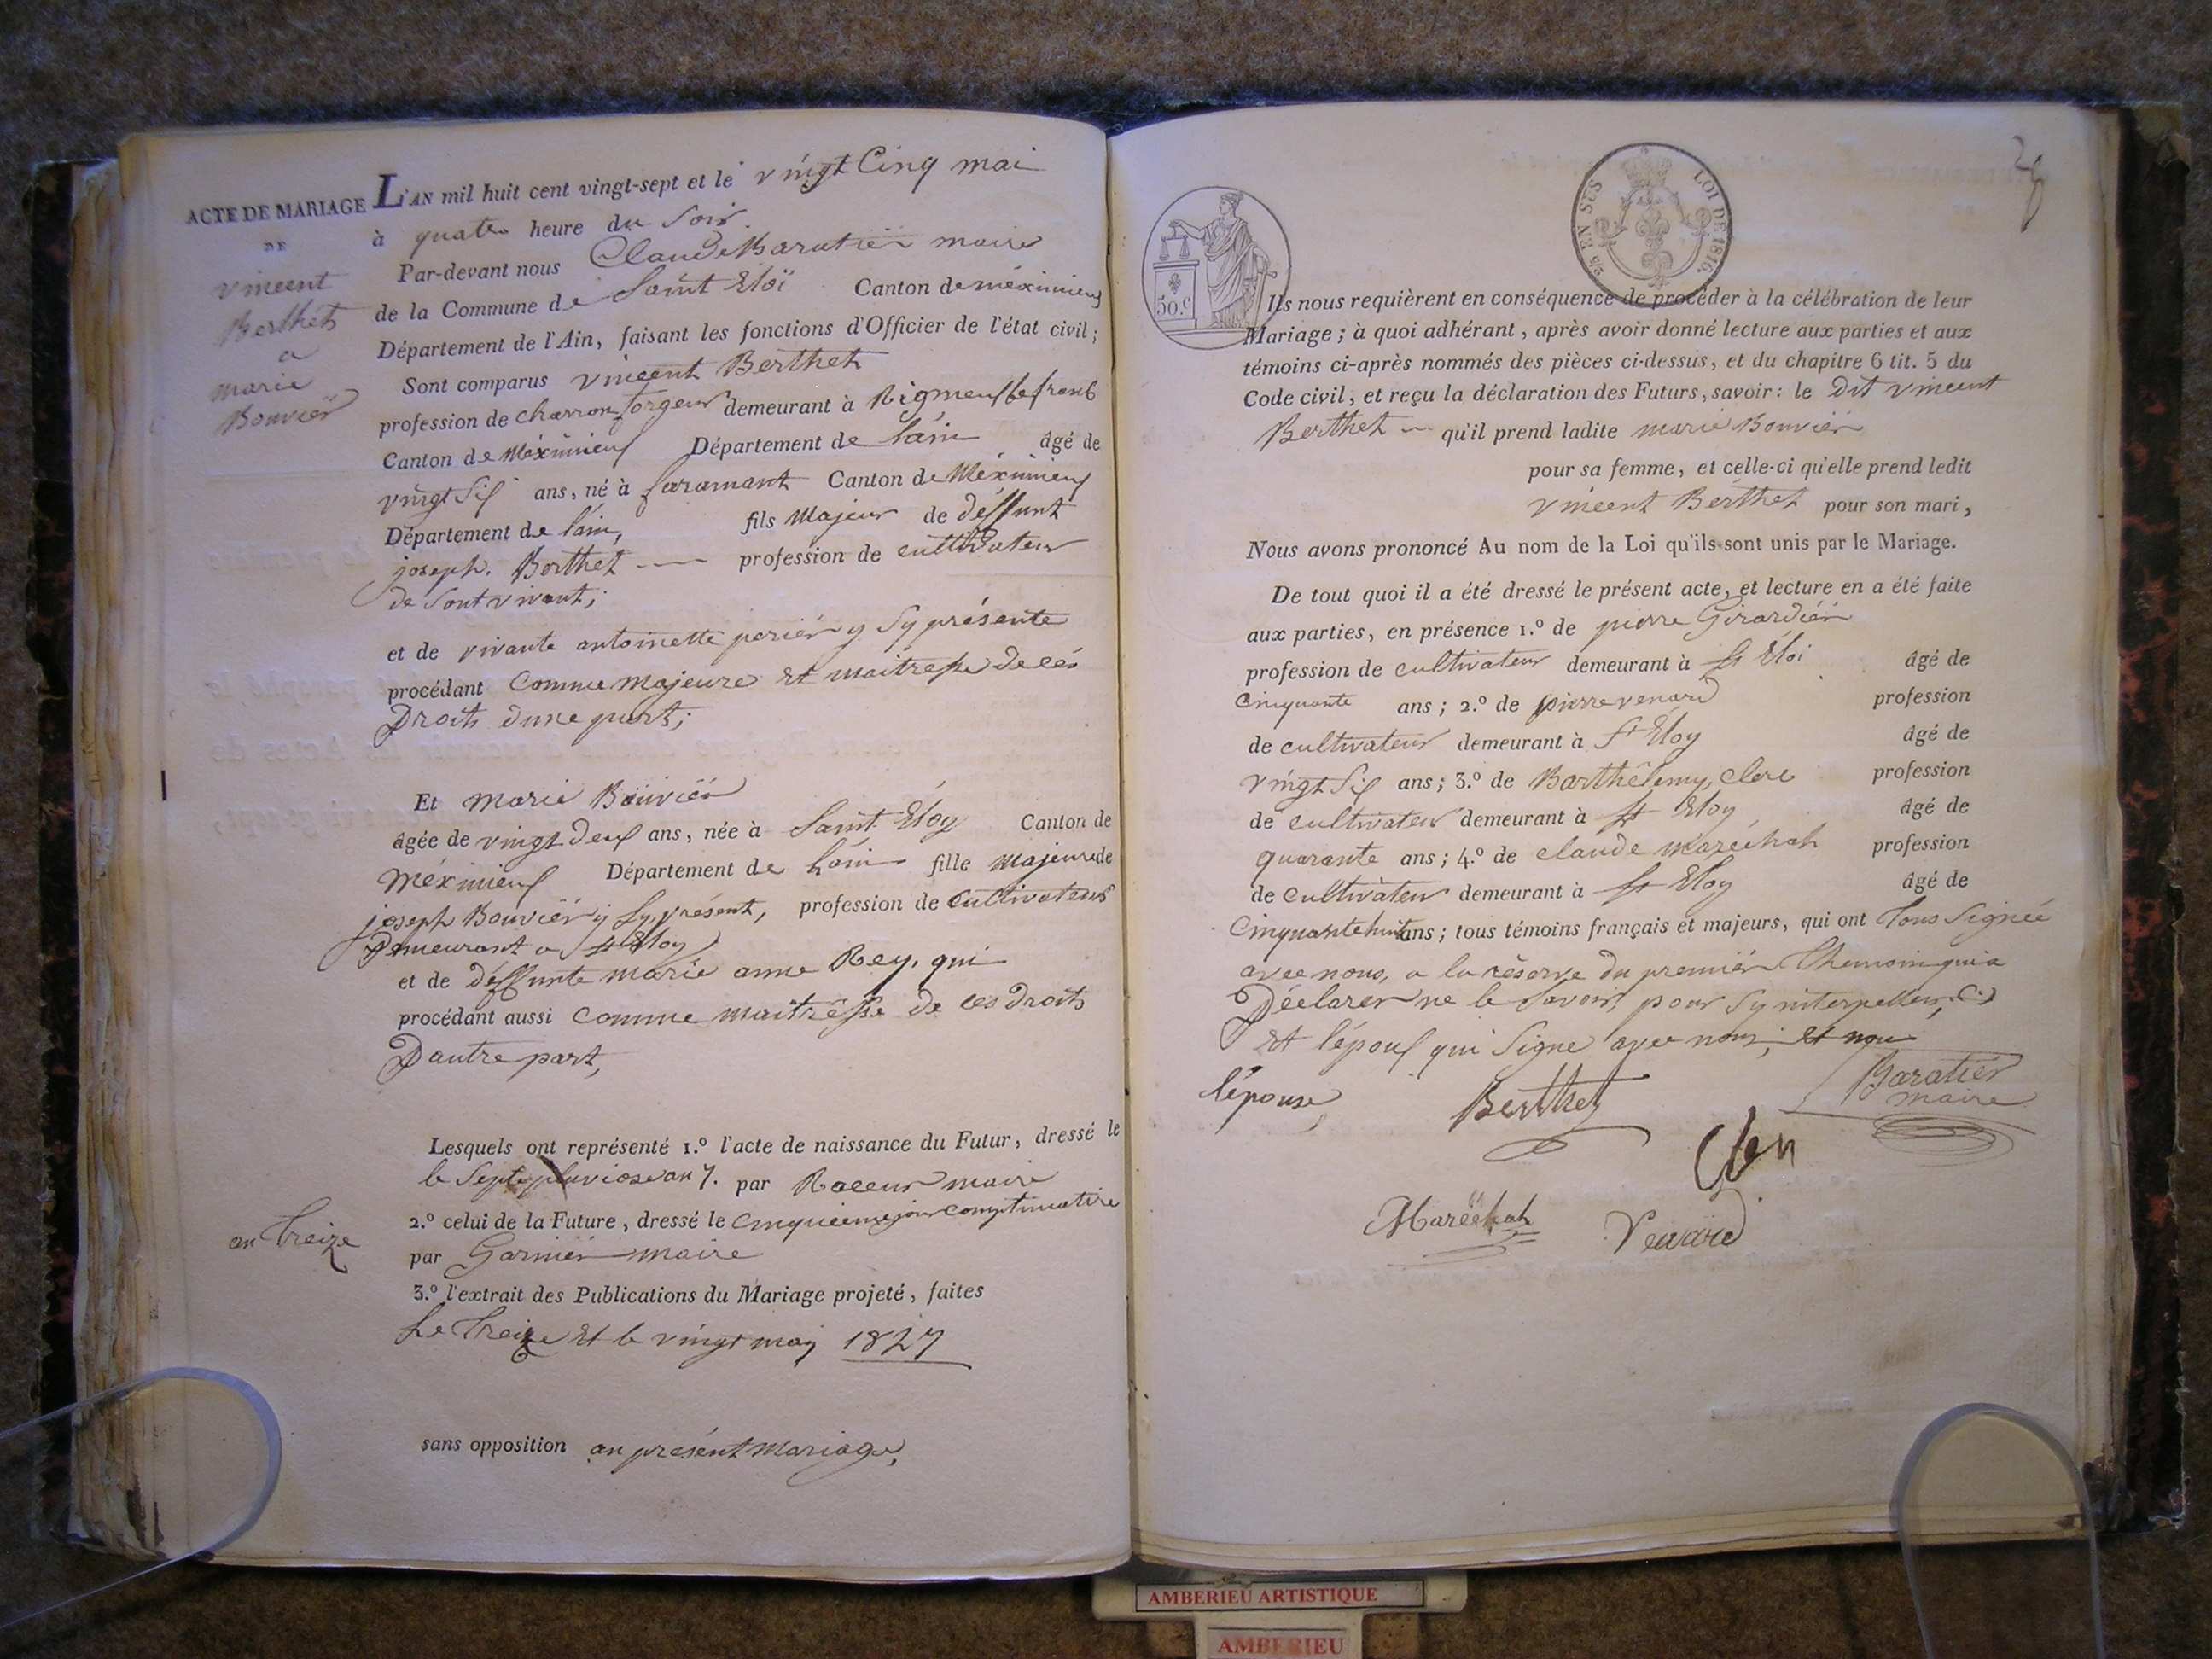 ACTE DE MARIAGE
DE
vincent
Berthet
a
marie
Bouviér
L'AN mil huit cent vingt-sept et le vingt Cinq mai
à quatre heure du Soir
Par-devant nous Claude Baratier maire
de la Commune de Saint Eloï Canton de méximieux
Département de l'Ain, faisant les fonctions d'Officier de l'état civil;
Sont comparus vincent Berthet
profession de charron forgeur demeurant à Rigneux le franc
Canton de Méximieux Département de l'ain âgé de
vingt Six ans, né à faramant Canton de Méximieux
Département de l'ain, fils Majeur de deffunt
joseph. Berthet profession de cultivateur
de Sont vivant;
et de vivante antoinette periér y Sy présente
procédant Comme Majeure et maitresse de cés
Droits dune part;
Et Marie Bouviér
âgée de vingt deux ans, née à Saint Eloy Canton de
Méximieux Département de Lain fille Majeure de
joseph Bouviér y Sy présent, profession de Cultivateur
Demeurant a St Eloy
et de déffunte marie anne Rey, qui
procédant aussi comme maitresse de ces droits
D'autre part,
Lesquels ont représenté 1.º l'acte de naissance du Futur, dressé le
le Sept pluviose an 7. par maire
2.º celui de la Future, dressé le Cinquieme jour Comptimentire
an treize
par Garnier maire
3.º l'extrait des Publications du Mariage projeté, faites
Le treize et le vingt may 1827
sans opposition au présent Mariage,
50.c
25 EN SUS
LOI DE 1816.
Ils nous requièrent en conséquence de procéder à la célébration de leur
Mariage; à quoi adhérant, après avoir donné lecture aux parties et aux
témoins ci-après nommés des pièces ci-dessus, et du chapitre 6 tit. 5 du
Code civil, et reçu la déclaration des Futurs, savoir: le dit vincent
Berthet qu'il prend ladite marie Bouviér
pour sa femme, et celle-ci qu'elle prend ledit
vincent Berthet pour son mari,
Nous avons prononcé Au nom de la Loi qu'ils sont unis par le Mariage.
De tout quoi il a été dressé le présent acte, et lecture en a été faite
aux parties, en présence 1.º de pierre Girardiér
profession de cultivateur demeurant à St Eloi âgé de
Cinquante ans; 2.º de pierre venard profession
de cultivateur demeurant à St Eloy âgé de
vingt Six ans; 3.º de Barthélemy Clere profession
de cultivateur demeurant à St Eloy âgé de
quarante ans; 4.º de claude Maréchal profession
de Cultivateur demeurant à St Eloy âgé de
Cinquante huit ans; tous témoins français et majeurs, qui ont tous Signée
avec nous, a la réserve du premiér Themoin qui a
Déclarer ne le Savoir, pour Sy interpeller,
Et l'époux qui Signe avec nous; et non
l'épouse,
Berthet
Baratier
maire
Maréchal
Venard
AMBERIEU ARTISTIQUE
AMBERIEU